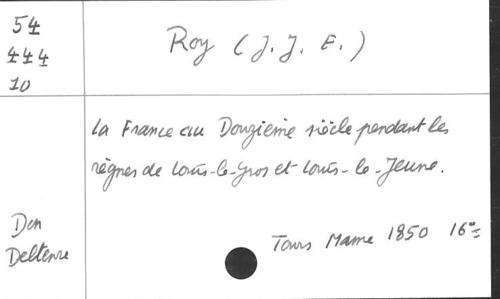 54
444
10
Roy (J. J. E.)
La France au Douzième siècle pendant les
règnes de Louis-le-Gros et Louis-le-Jeune.
Don
Deltenre
Tours Mame 1850 16°